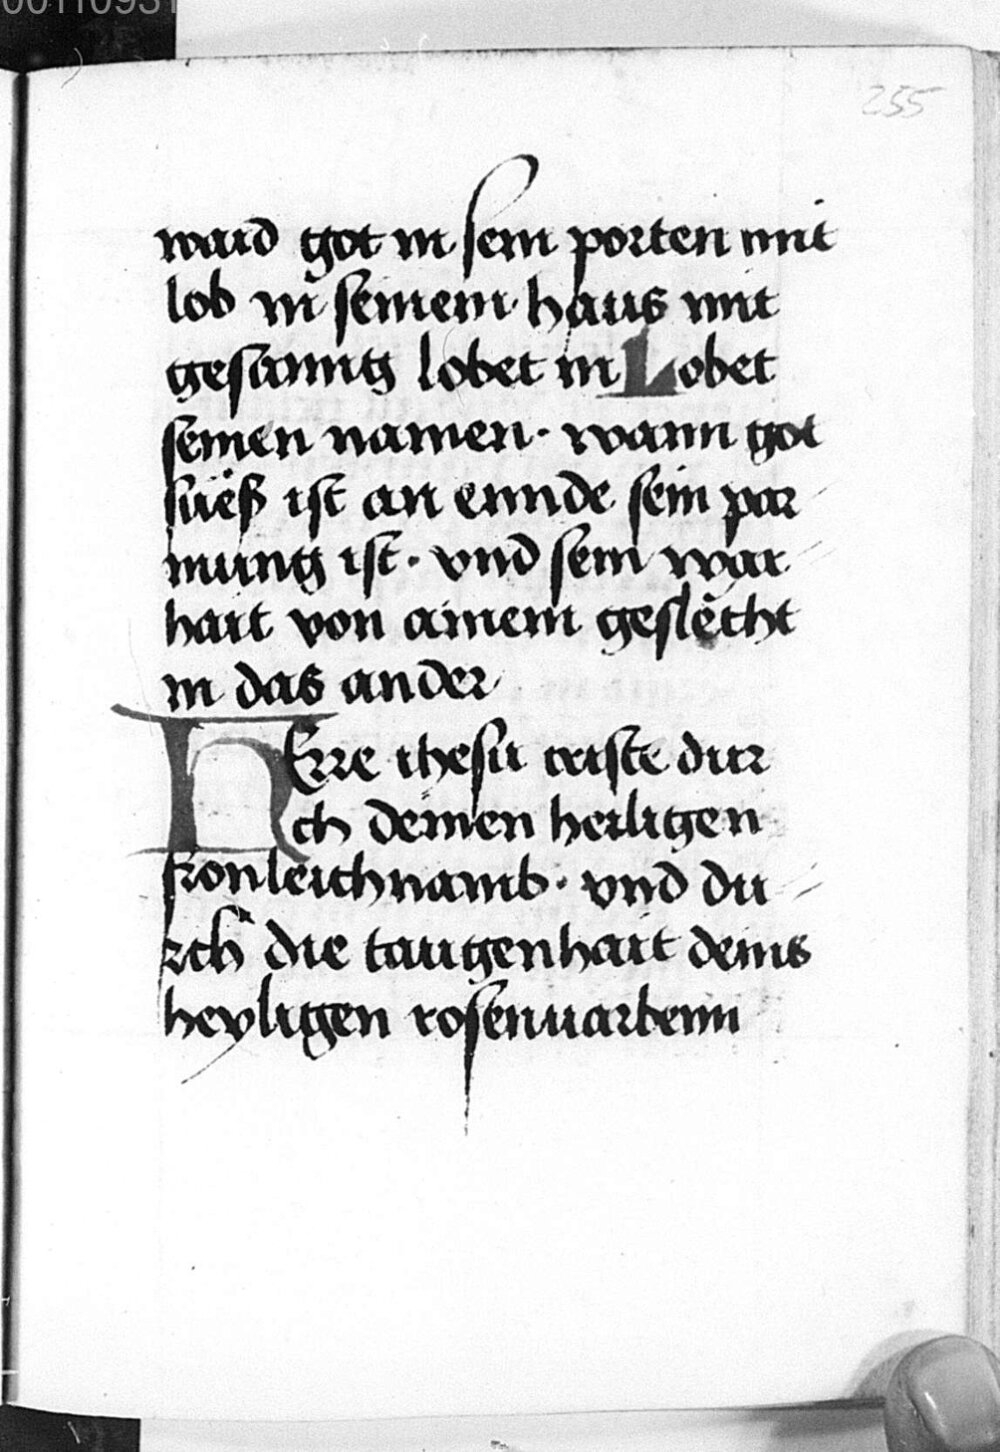 00110931
255
waid got in sein porten mit
lob in seinem haus mit
gesanng lobet in Lobet
seinen namen · wann got
süeß ist an ennde sein par
mung ist · vnd sein war
hait von ainem geslëcht
in das ander
HErre ihesu criste dur
ch deinen heiligen
fronleichnamb · vnd du
rch die taugenhait deins
heyligen rosenuarbenn